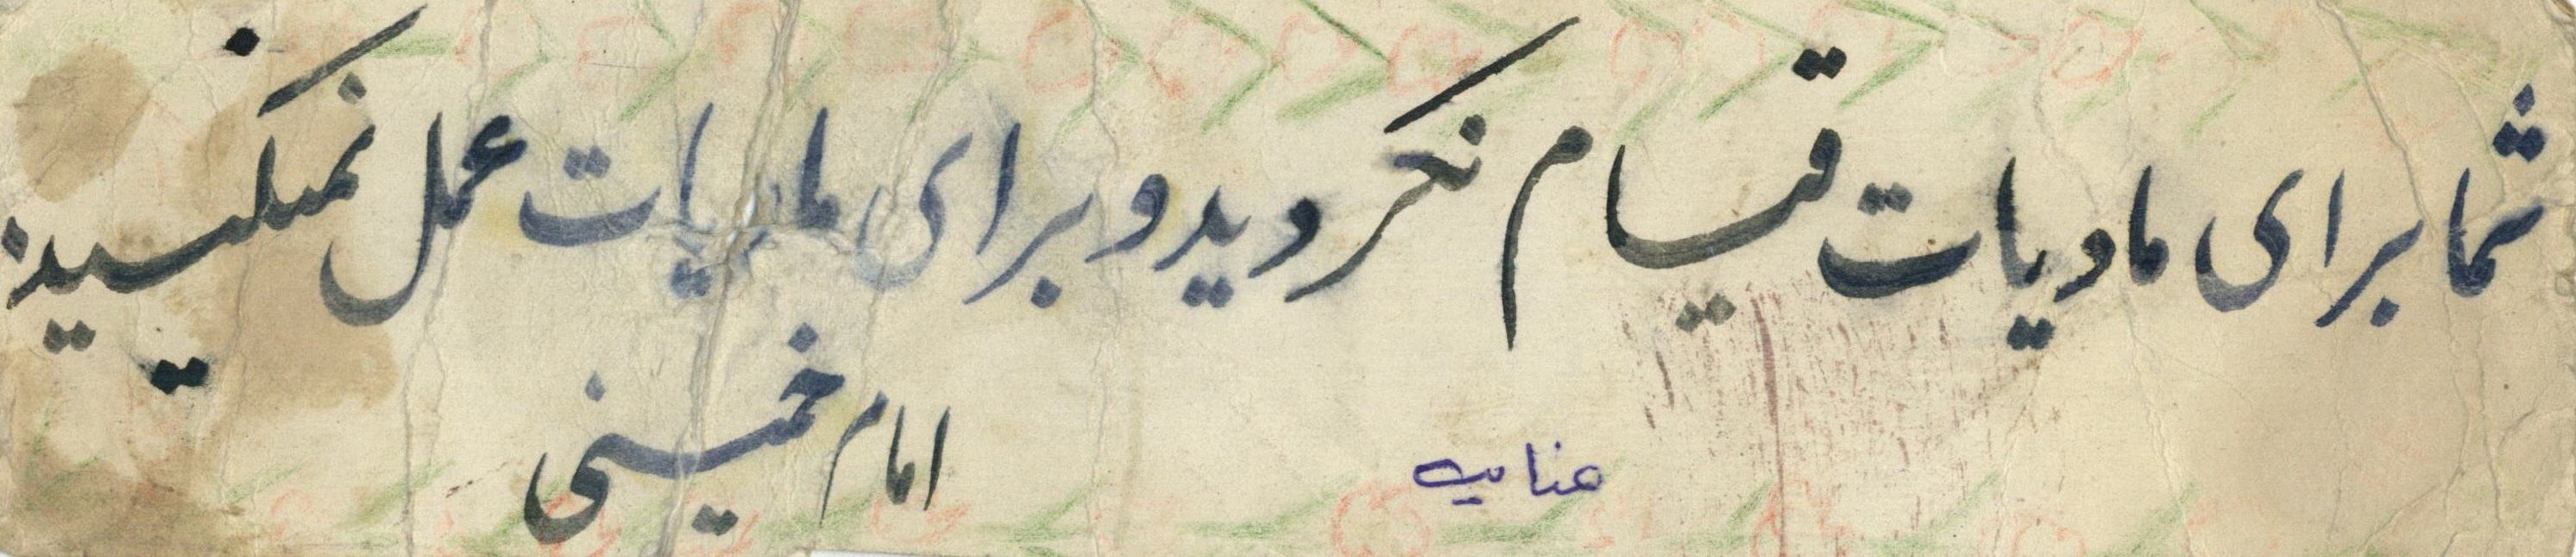 شما برای مادیات قیام نکردید و برای مادیات عمل نمیکنید:
امام خمینی